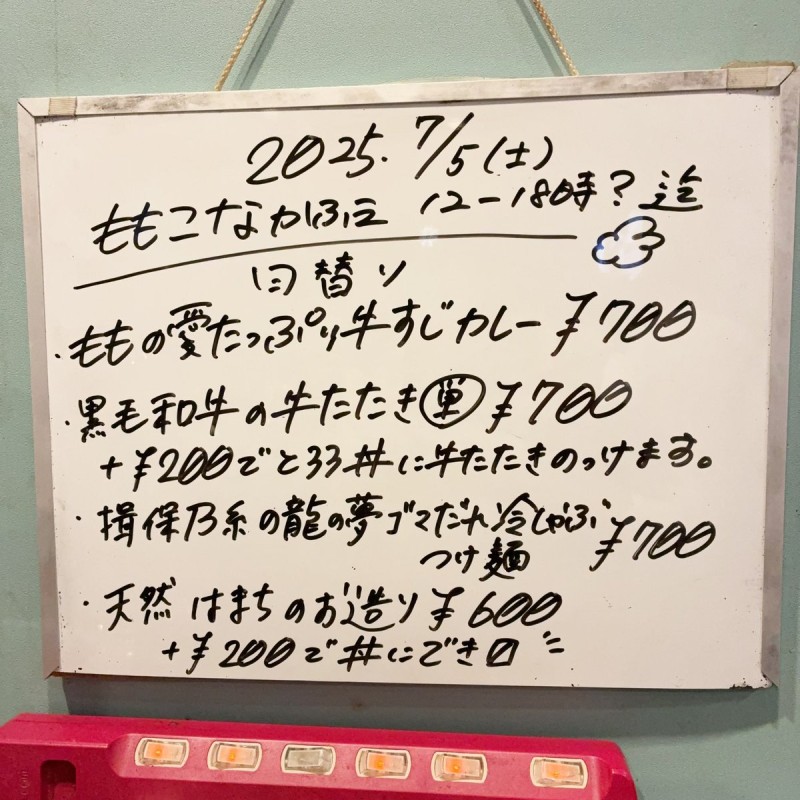 2025. 7/5(土)
ももこなかふに 12-18時?迄
日替り
・ももの愛たっぷり牛すじカレー ¥700
・黒毛和牛の牛たたき単 ¥700
+¥200でとろろ丼に牛たたきのっけます。
・揖保乃糸の龍の夢ゴマだれ冷しゃぶ ¥700
つけ麺
・天然はまちのお造り ¥600
+¥200で丼にでき